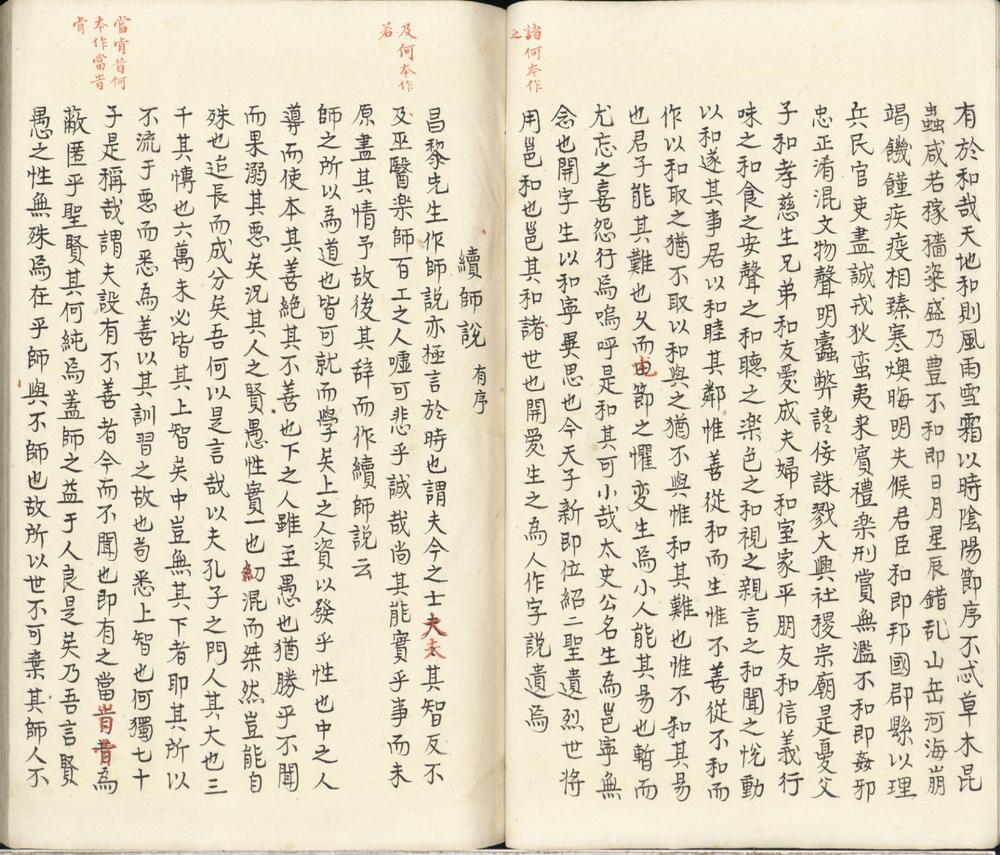 諸何本作
之
有於和哉天地和則風雨雪霜以時陰陽節序不忒草木昆
蟲咸若稼穡粢盛乃豊不和即日月星辰錯乱山岳河海崩
竭饑饉疾疫相臻寒燠晦明失候君臣和即邦國郡縣以理
兵民官吏盡誠戎狄蛮夷来賓禮楽刑賞無濫不和即姦邪
忠正淆混文物聲明蠹弊讒佞誅戮大興社稷宗廟是憂父
子和孝慈生兄弟和友愛成夫婦和室家平朋友和信義行
味之和食之安聲之和聽之楽色之和視之親言之和聞之悅動
以和遂其事居以和睦其鄰惟善從和而生惟不善從不和而
作以和取之猶不取以和與之猶不與惟和其難也惟不和其易
也君子能其難也久而也節之懼変生焉小人能其易也暫而
尤忘之喜怨行焉嗚呼是和其可小哉太史公名生為邕寧無
念也開字生以和寧異思也今天子新即位紹二聖遺烈世将
用邕和也邕其和諸世也開愛生之為人作字說遺焉
及何本作
若
當肯昔何
本作當昔
肯
續師說 有序
昌黎先生作師說亦極言於時也謂夫今之士夫太其智反不
及巫醫楽師百工之人噓可悲乎誠哉尚其能實乎事而未
原盡其情予故後其辞而作續師說云
師之所以為道也皆可就而學矣上之人資以發乎性也中之人
導而使本其善絕其不善也下之人雖至愚也猶勝乎不聞
而果溺其惡矣況其人之賢愚性實一也初混而桀然豈能自
殊也迨長而成分矣吾何以是言哉以夫孔子之門人其大也三
千其愽也六萬未必皆其上智矣中豈無其下者耶其所以
不流于惡而悉為善以其訓習之故也苟悉上智也何獨七十
子是稱哉謂夫設有不善者今而不聞也即有之當肯昔為
蔽匿乎聖賢其何純焉蓋師之益于人良是矣乃吾言賢
愚之性無殊焉在乎師與不師也故所以世不可棄其師人不